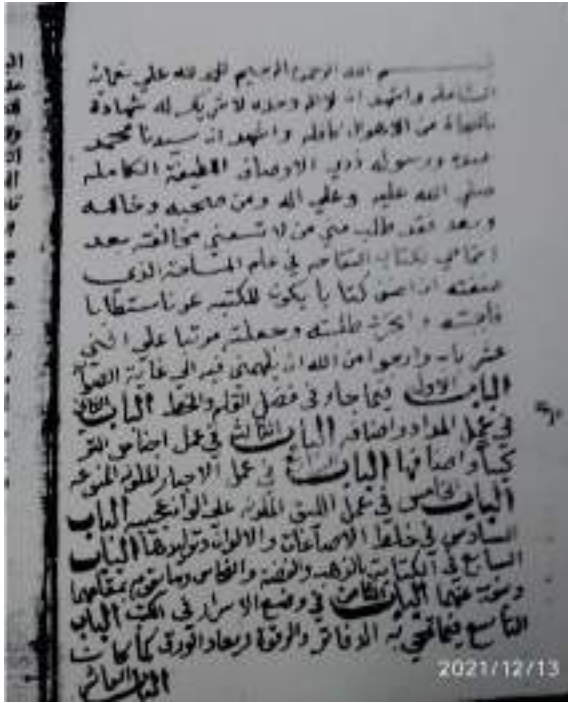 بسم الله الرحمن الرحيم الحمد لله علي نعمائه
الشامله واشهد ان لا اله وحده لا شريك له شهادة
بالنجاة من الاهوال كافله واشهد ان سيدنا محمد
عبده ورسوله ذوي الاوصاف اللطيفة الكامله
صلي الله عليه وعلي اله ومن صحبه وخالله
وبعد فقد طلب مني من لا تسعني مخالفته بعد
اتمامي لكتاب التفاحه في علم المساحة الذي
صنفته ان اصنف كتابا يكون للكتبه عونا
فاجبته طلبته وجعلته مرتبا علي اثني
عشر بابا وارجوا من الله ان يلهمني فيه الي غاية الصواب
الباب الاول فيما جاء في فضل القلم والخط الباب الثاني
في عمل المداد واصنافه الباب الثالث في عمل اجناس
واصنافها الباب الرابع في عمل الاحبار الملونه المنوعه
الباب الخامس في عمل الليق الملونه علي الوان عجيبه الباب
السادس في خلط الاصباغات والالوان وتوليدها الباب
السابع في الكتابة بالذهب والفضة والنحاس وما يقوم مقامهما
عنهما الباب الثامن في وضع الاسرار في الكتب الباب
التاسع فيما تمحي به الدفاتر والرقوق ويعاد الورق كما كانت
الباب العاشر
2021/12/13